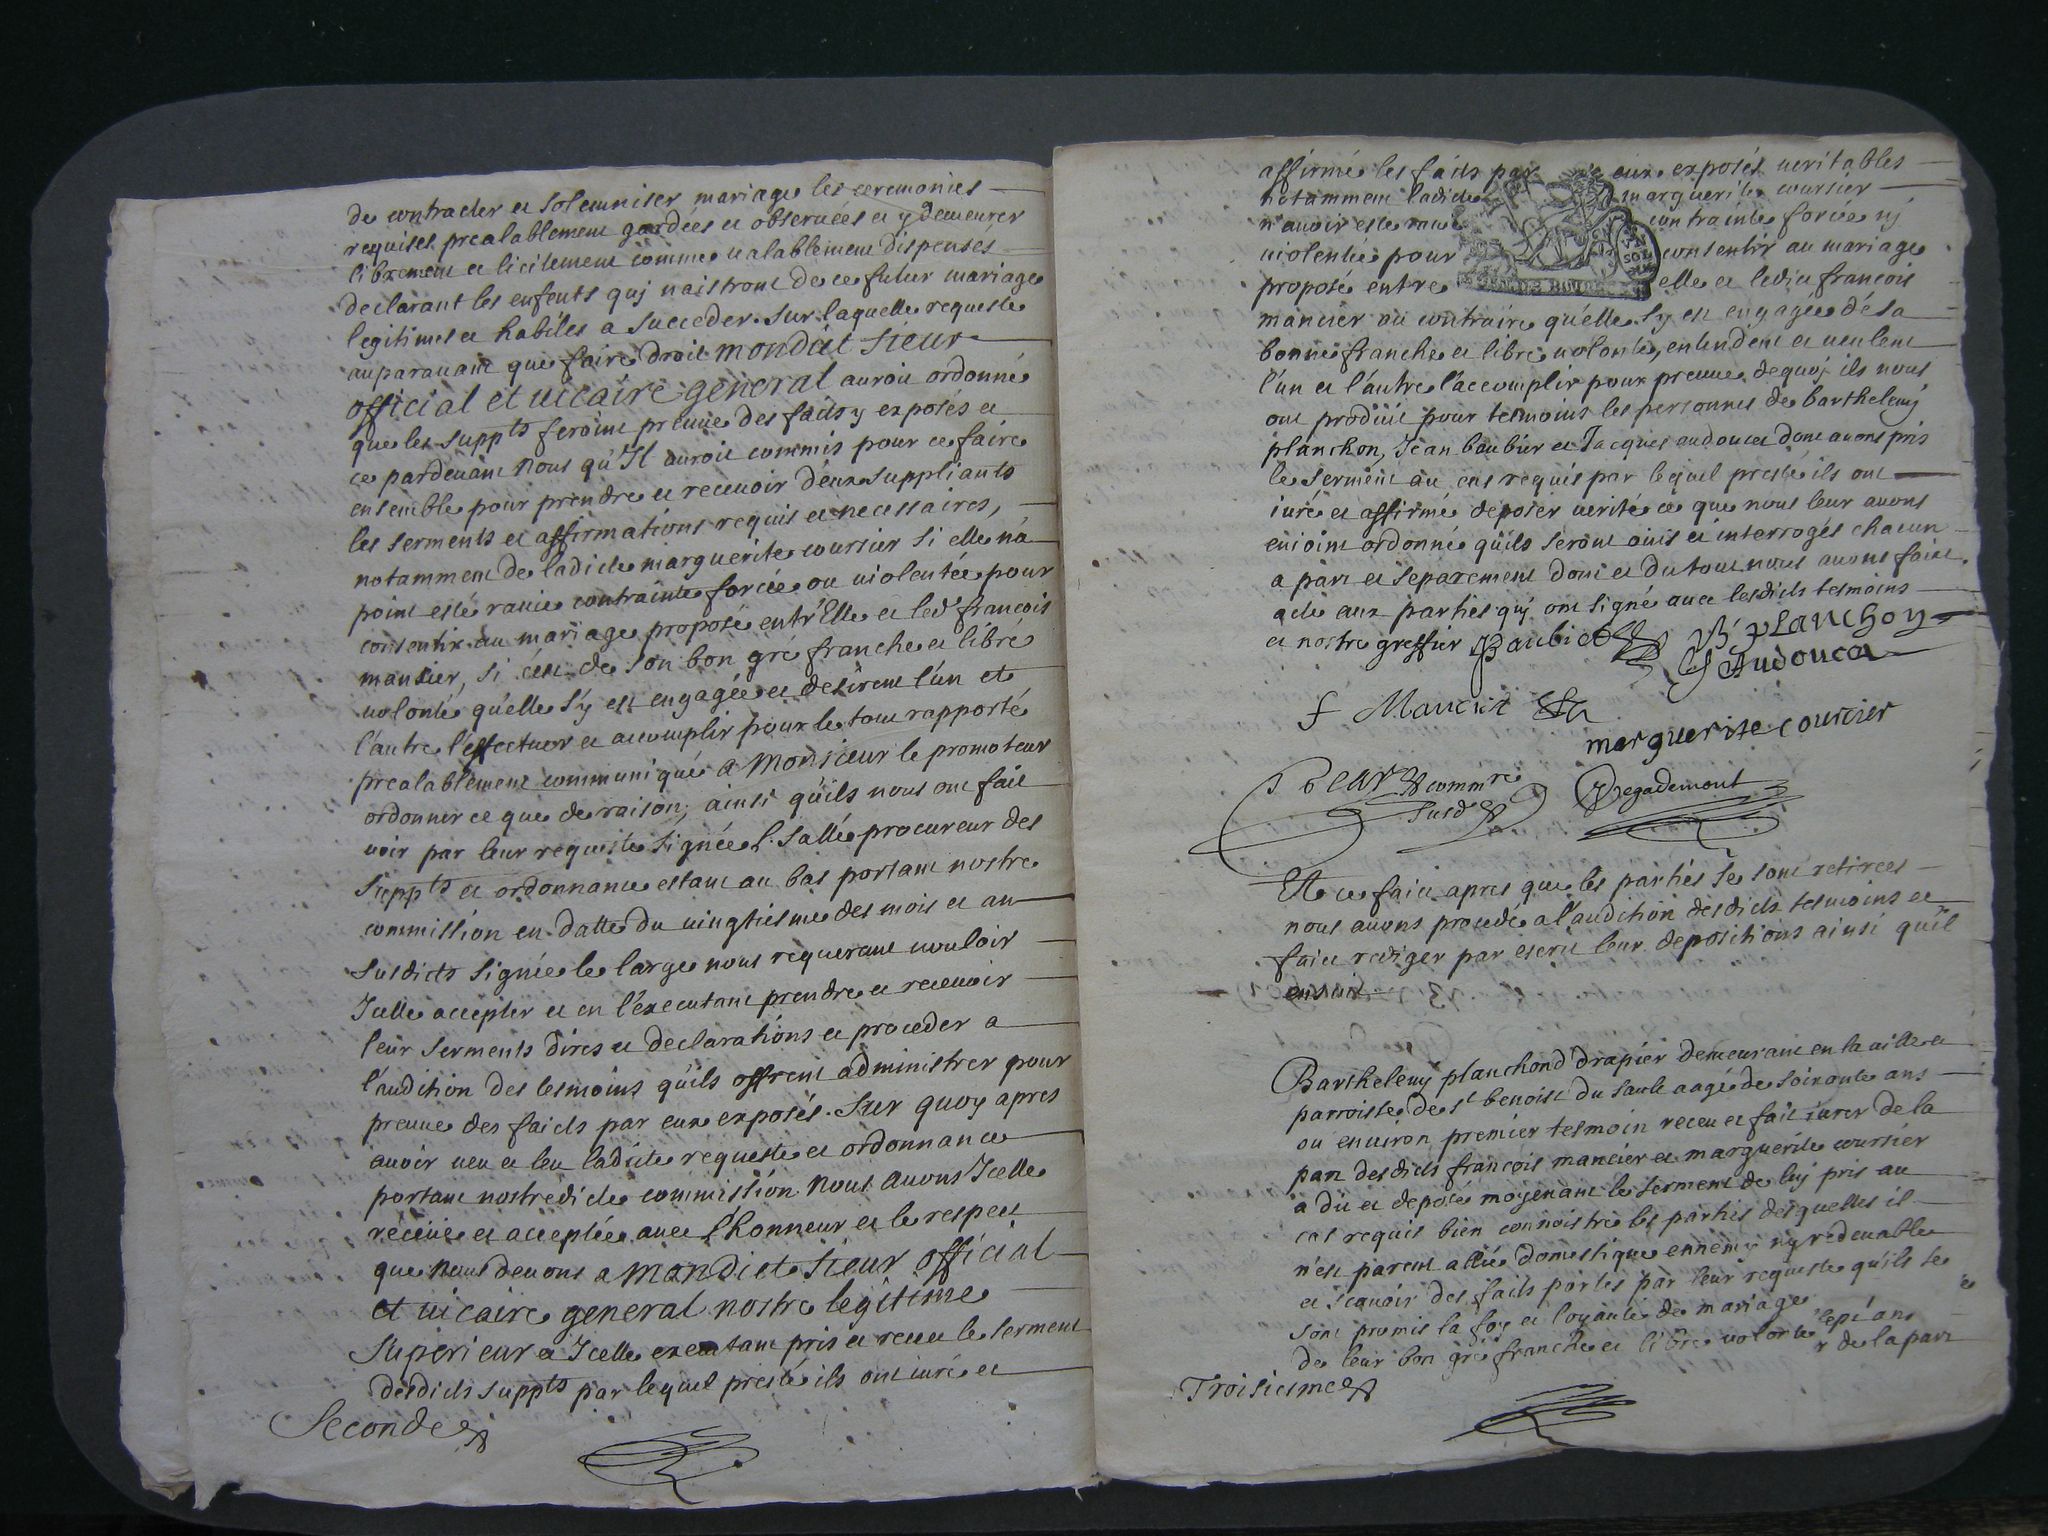 de contracter et solemniser mariage les ceremonies
requises prealablement gardées et observées et y demeurer
librement et licitement comme valablement dispensés
declarant les enfents quj naistront de ce futur mariage
legitimes et habiles a succeder. sur laquelle requeste
auparavant que faire droit mondict sieur
official et vicaire general auroit ordonné
que les suppts feroint preuve des faits y exposés et
ce pardevant nous qu'Il auroit commis pour ce faire
ensemble pour prendre et recevoir d'eux suppliants
les serments et affirmations requis et necessaires,
notamment de ladicte marguerite coursier si elle na
point esté ravie contrainte forcée ou violentée pour
consentir au mariage proposé entr'Elle et led' francois
mansier, si c'est de son bon gré franche et libre
volonté qu'elle s'y est engagée et desirent l'un et
l'autre l'effectuer et accomplir pour le tout rapporté
prealablement communiqué a Monsieur le promoteur
ordonner ce que de raison, ainsi qu'ils nous ont fait
voir par leur requeste signée l. sallé procureur des
suppts et ordonnance estant au bas portant nostre
commission en datte du vingtiesme des mois et an
susdicts signée le large nous requerant vouloir
Icelle accepter et en l'executant prendre et recevoir
leur serments dires et declarations et proceder a
l'audition des tesmoins qu'ils offrent administrer pour
preuve des faicts par eux exposés. sur quoy apres
avoir veu et leu ladicte requeste et ordonnance
portant nostredicte commission nous avons Icelle
receüe et acceptée avec l'honneur et le respect
que nous devons a mondict sieur official
et vicaire general nostre legitime
superieur et Icelle executant pris et receu le serment
desdicts suppts par lequel presté ils ont juré et
Seconde
affirmé les faits par eux exposés veritables
notamment ladicte marguerite coursier
n'avoir esté ravie contrainte forcée nj
violentée pour consentir au mariage
proposé entre elle et ledict francois
mancier au contraire qu'elle s'y est engagée de sa
bonne franche et libre volonté, entendent et veulent
l'un et l'autre l'accomplir pour preuve dequoj ils nous
ont produit pour tesmoins les personnes de barthelemj
planchon, Jean baubiet et Jacques audoucet dont avons pris
le serment au cas requis par lequel presté ils ont
juré et affirmé deposer verité ce que nous leur avons
enjoint ordonné qu'ils seront ouis et interrogés chacun
a part et separement dont et du tout nous avons faict
acte aux parties quj ont signé avec lesdicts tesmoins
et nostre greffier Baubiet B planchon
J Audoucet
f Mancier
marguerite coursier
commre Regademont
susd
Et ce faict apres que les parties se sont retirées
nous avons procedé a l'audition desdicts tesmoins et
faict rediger par escrit leur depositions ainsi qu'il
ensuit
Barthelemy planchond drapier demeurant en la ville et
parroisse de st benoist du sault aagé de soixante ans
ou environ premier tesmoin receu et fait jurer de la
part desdicts françois mancier et marguerite coursier
a dit et deposé moyenant le serment de luj pris au
cas requis bien connoistre les parties desquelles il
n'est parent allié domestique ennemy ny redevable
et scavoir des faits portés par leur requeste qu'ils se
sont promis la foy et loyauté de mariage
de leur bon gré franche et libre volonté
sept ans
r de la part
Troisiesme